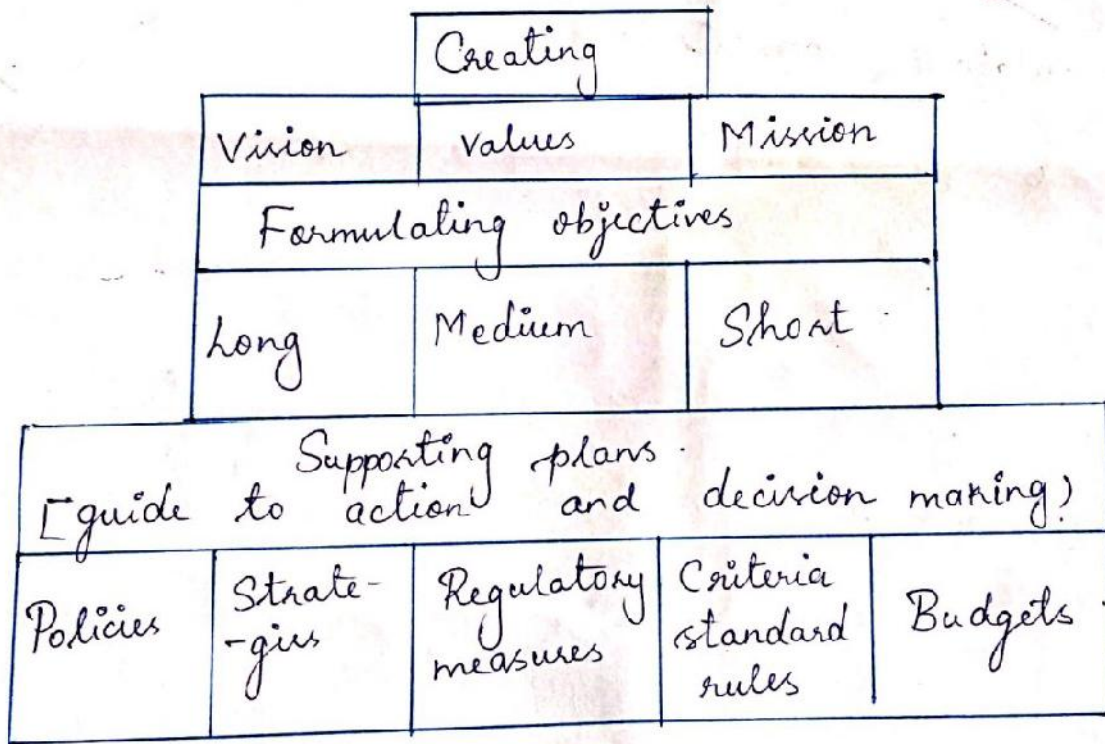 Creating
Vision values Mission
Formulating objectives
Long Medium Short
Supporting plans
[guide to action and decision making)
Policies
Strate-
-gies
Regulatory
measures
Criteria
standard
rules
Budgets